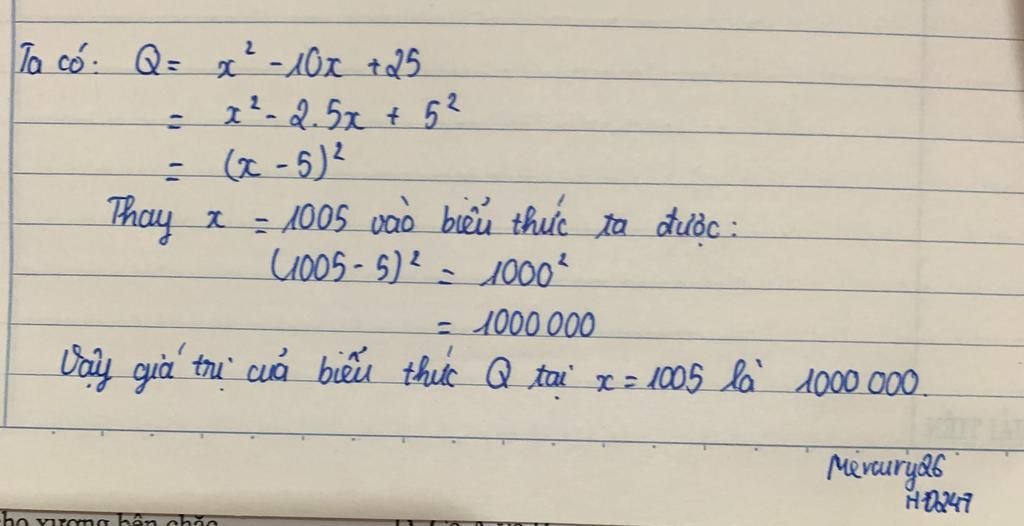 Ta có: Q = x² - 10x + 25
= x² - 2.5x + 5²
= (x - 5)²
Thay x = 1005 vào biểu thức ta được:
(1005 - 5)² = 1000²
= 1000 000
Vậy giá trị của biểu thức Q tại x = 1005 là 1000 000.
Mercury26
HĐ247